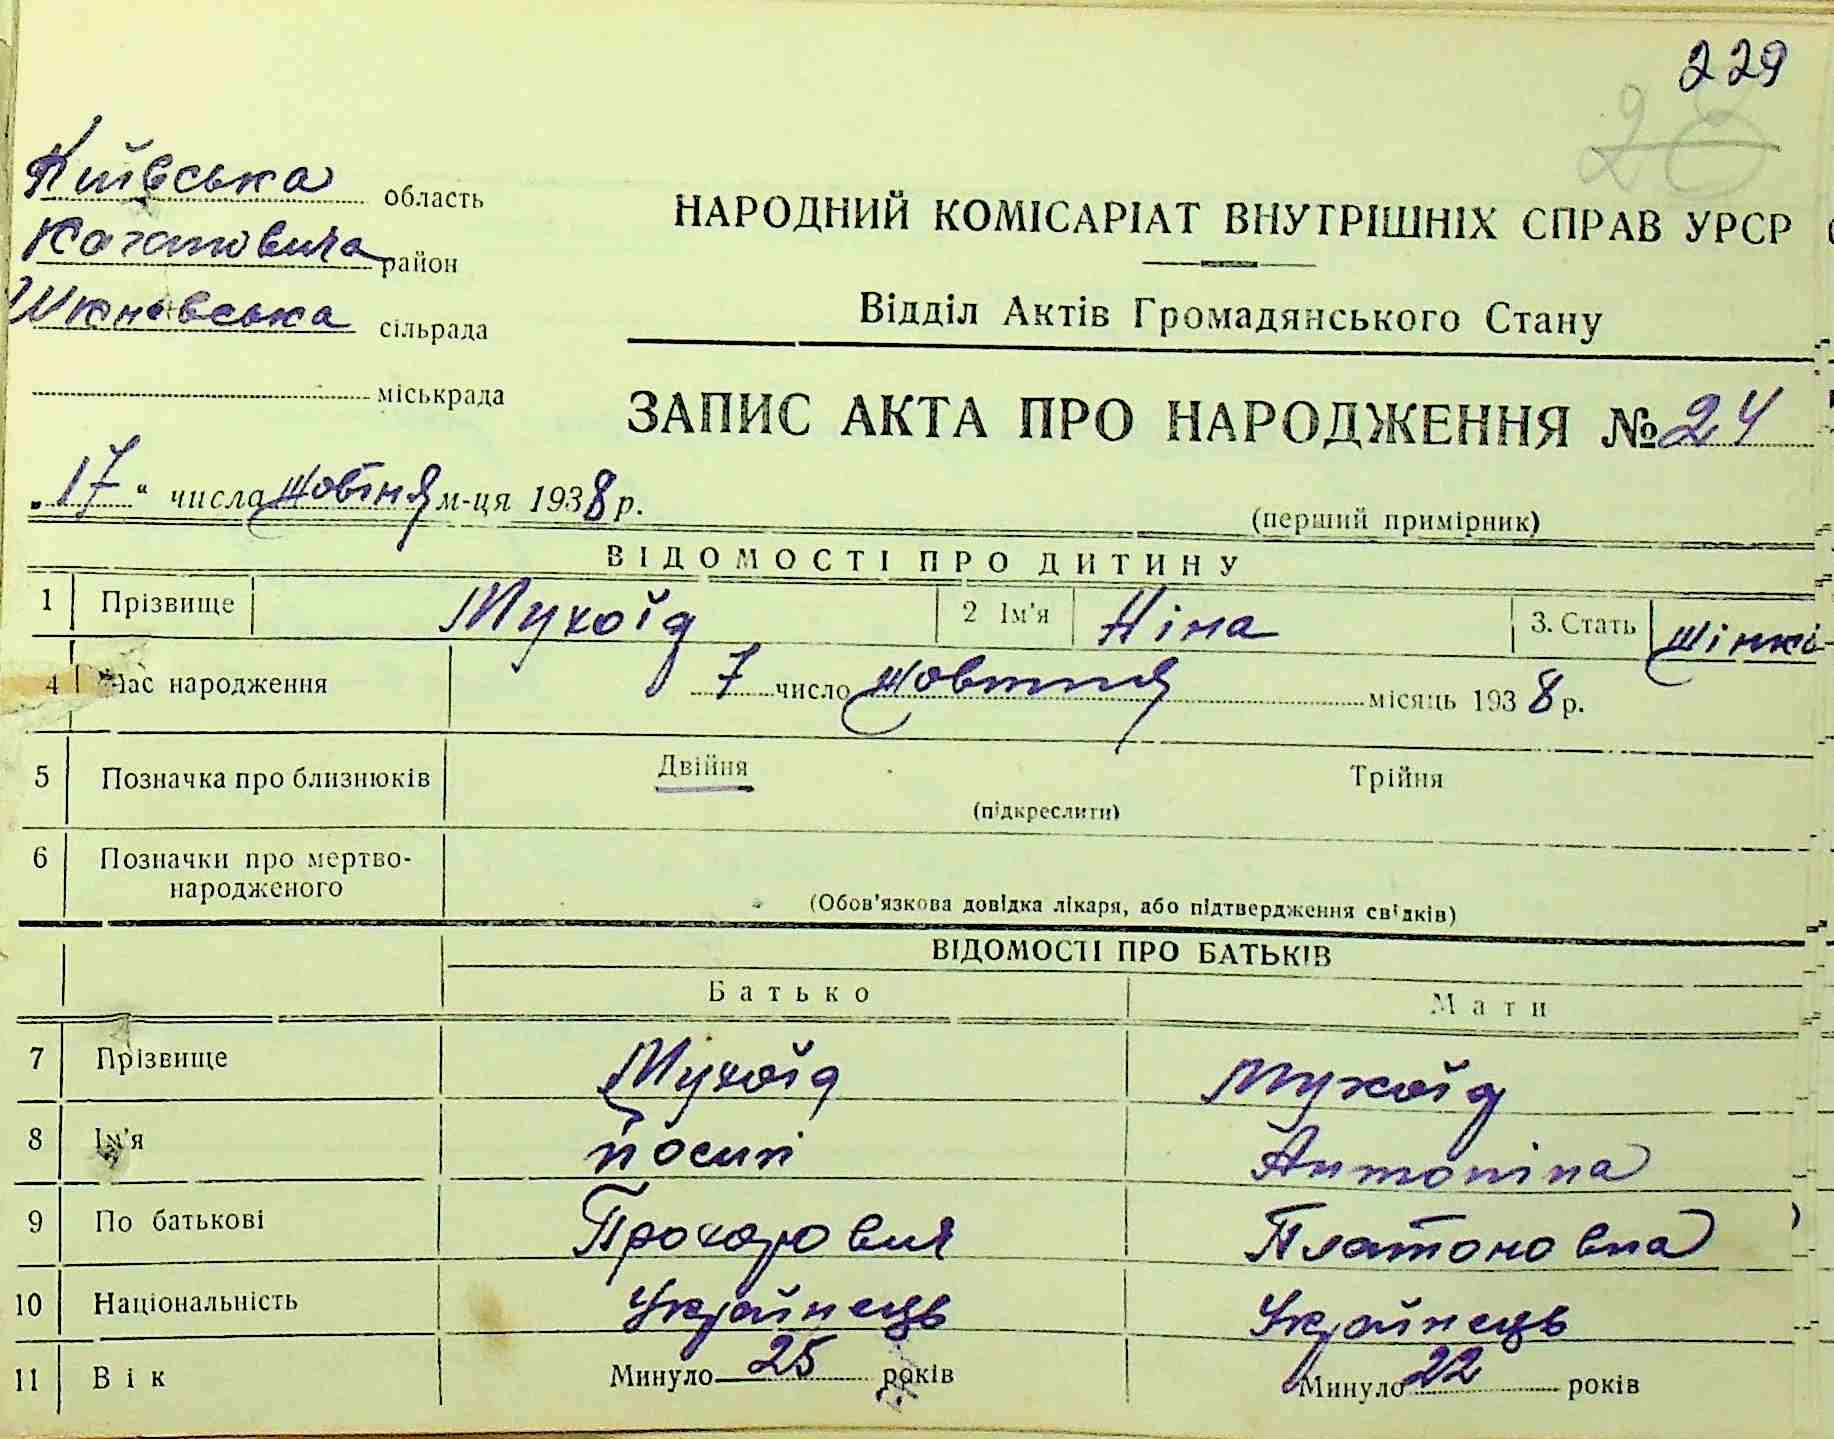 229
28
Київська область
Кагановича район
сільрада
міськрада
НАРОДНИЙ КОМІСАРІАТ ВНУТРІШНІХ СПРАВ УРСР
Відділ Актів Громадянського Стану
ЗАПИС АКТА ПРО НАРОДЖЕННЯ № 24
„17“ числа жовтня м-ця 1938 р.
(перший примірник)
ВІДОМОСТІ ПРО ДИТИНУ
1 Прізвище Мухоїд 2 Ім'я Ніна 3. Стать жінкі-
4 Час народження 7 число жовтня місяць 1938 р.
5 Позначка про близнюків Двійня Трійня
(підкреслити)
6 Позначки про мертво-
народженого
(Обов'язкова довідка лікаря, або підтвердження свідків)
ВІДОМОСТІ ПРО БАТЬКІВ
Батько Мати
7 Прізвище Мухоїд Мухоїд
8 Ім'я Йосип Антоніна
9 По батькові Прохорович Платоновна
10 Національність Українець Українець
11 Вік Минуло 25 років Минуло 22 років